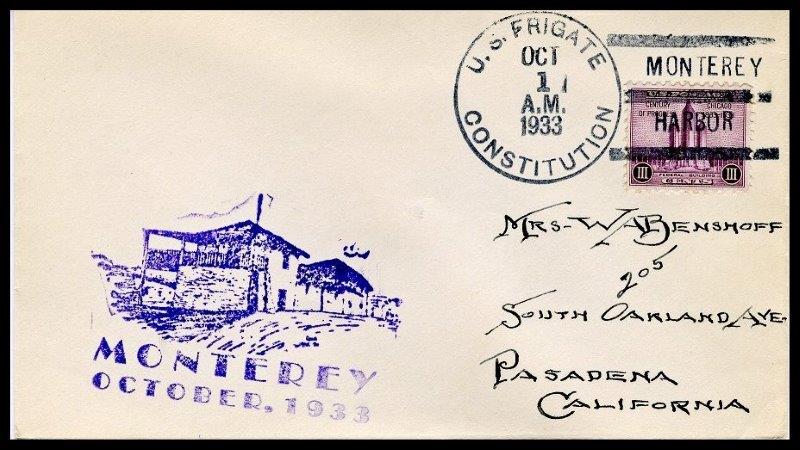 U.S. FRIGATE
OCT
1
A.M.
1933
CONSTITUTION
MONTEREY
HARBOR
CENTURY CHICAGO
FEDERAL BUILDING
III CENTS III
MRS. W.A. BENSHOFF
205
SOUTH OAKLAND AVE.
PASADENA
CALIFORNIA
MONTEREY
OCTOBER, 1933